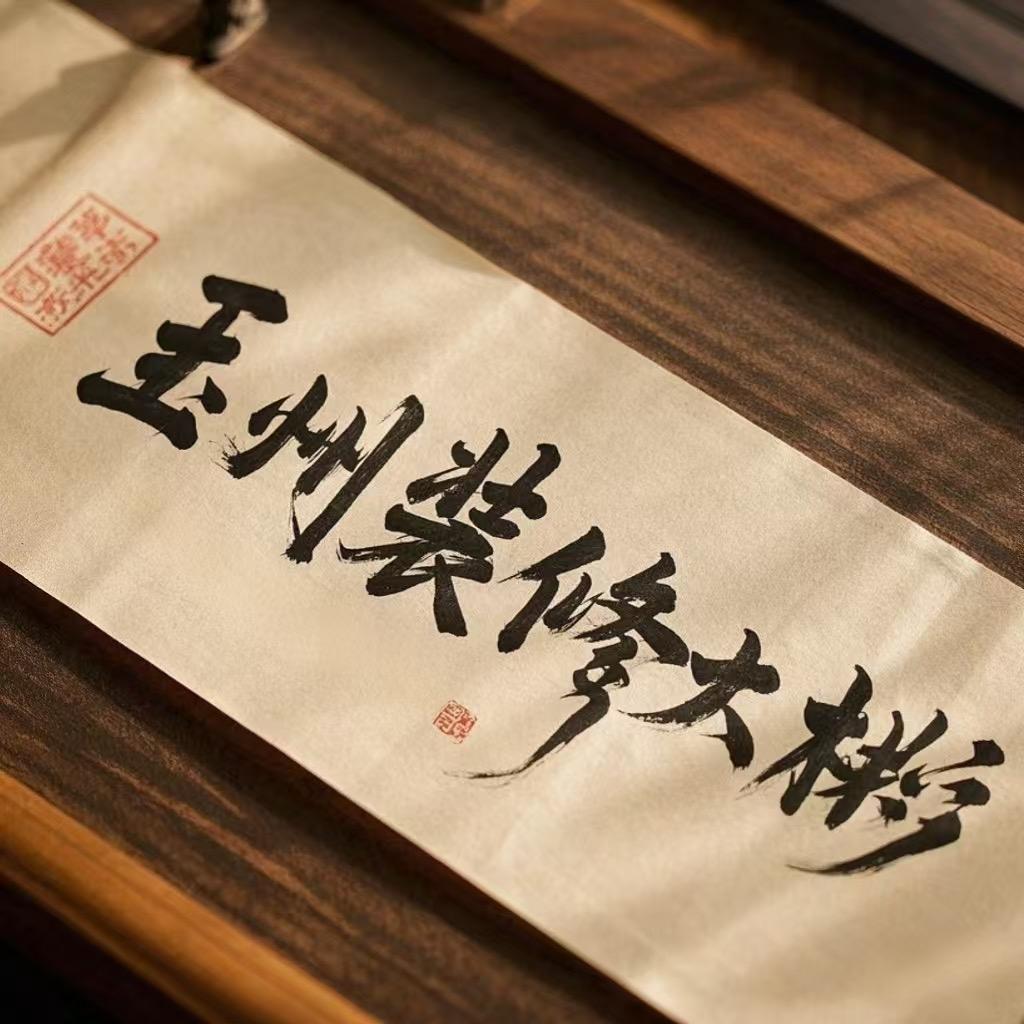 玉州装修大